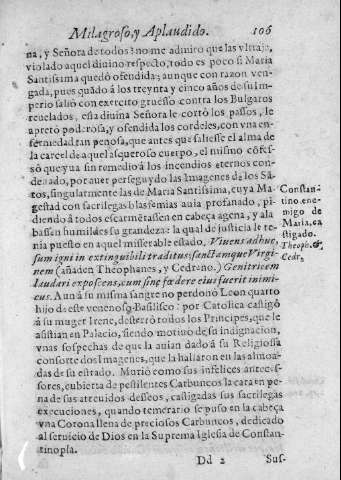 Milagroso, y Aplaudido. 106
na, y Señora de todos? no me admiro que las vltraje,
violado aquel diuino respecto, todo es poco si Maria
Santissima quedò ofendida; aunque con razon ven-
gada, pues quãdo à los treynta y cinco años de su im-
perio saliò con exercito gruesso contra los Bulgaros
reuelados, esta diuina Señora le cortò los passos, le
apretò poderosa, y ofendida los cordeles, con vna en-
fermedad tan penosa, que antes que saliesse el alma de
la carcel de aquel asqueroso cuerpo, el mismo cõfes-
sò que yua sin remedio à los incendios eternos con-
denado, por auer perseguydo las Imagenes de los Sã-
tos, singularmente las de Maria Santissima, cuya Ma-
gestad con sacrilegas blasfemias auia profanado, pi-
diendo à todos escarmētassen en cabeça agena, y ala-
bassen humildes su grandeza: la qual de justicia le te-
nia puesto en aquel misserable estado. Viuens adhuc,
sum igni in extinguibili traditus; sanctamque Virgi-
nem (añaden Theophanes, y Cedreno) Genitricem
laudari exposcens, cum sine fœdere eius fuerit inimi-
cus. Aun à su misma sangre no perdonò Leon quarto
hijo de este venenoso Basilisco: por Catolica castigò
à su muger Irene, desterrò todos los Principes, que le
asistian en Palacio, siendo motiuo de su indignacion,
vnas sospechas de que la auian dado à su Religiosa
consorte dos Imagenes, que la hallaron en las almoa-
das de su estrado. Muriò como sus infelices anteces-
sores, cubierta de pestilentes Carbuncos la cara en pe-
na de sus atreuidos desseos, castigadas sus sacrilegas
execuciones, quando temerario se puso en la cabeça
vna Corona llena de preciosos Carbuncos, dedicado
al seruicio de Dios en la Suprema Iglesia de Constan-
tinopla.
Dd 2 Sus-
Constan-
tino ene-
migo de
Maria, ca
stigado.
Theoph. &
Cedr.